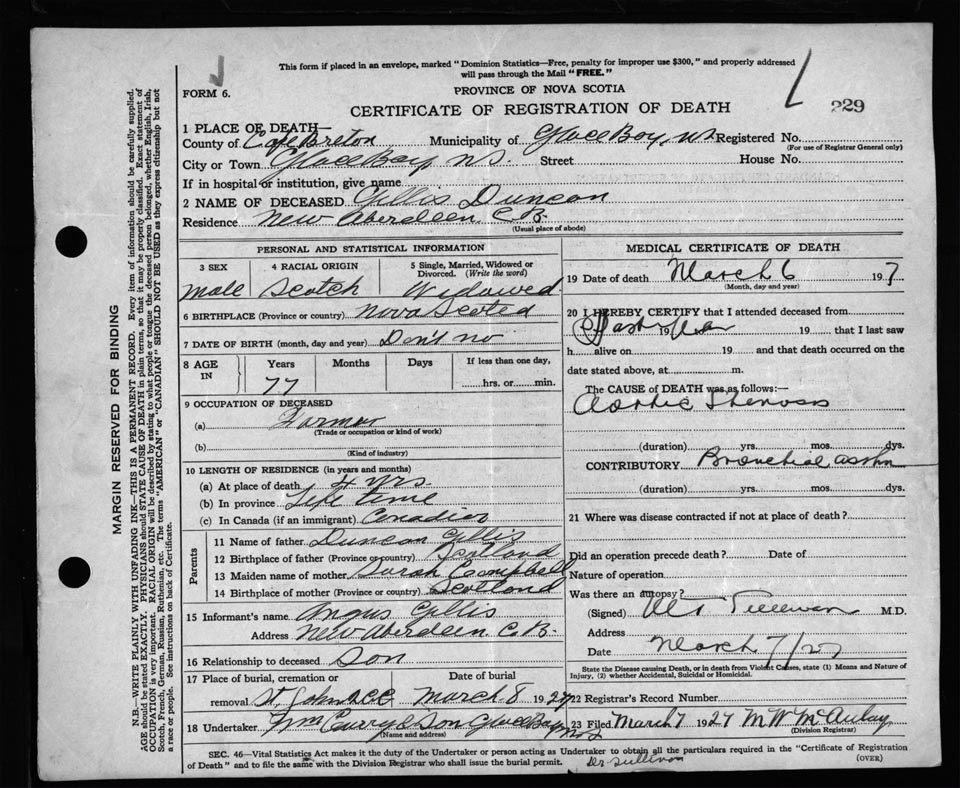 This form if placed in an envelope, marked "Dominion Statistics—Free, penalty for improper use $300," and properly addressed
will pass through the Mail "FREE."
FORM 6.
PROVINCE OF NOVA SCOTIA
CERTIFICATE OF REGISTRATION OF DEATH
229
1 PLACE OF DEATH—
County of Cape Breton Municipality of Glace Bay, N.S. Registered No.
(For use of Registrar General only)
City or Town Glace Bay, N.S. Street House No.
If in hospital or institution, give name
2 NAME OF DECEASED Gillis Duncan
Residence New Aberdeen C.B.
(Usual place of abode)
PERSONAL AND STATISTICAL INFORMATION
3 SEX 4 RACIAL ORIGIN 5 Single, Married, Widowed or Divorced. (Write the word)
Male Scotch Widowed
6 BIRTHPLACE (Province or country) Nova Scotea
7 DATE OF BIRTH (month, day and year) Don't no
8 AGE IN Years Months Days If less than one day,
77 hrs. or min.
9 OCCUPATION OF DECEASED
(a) Farmer
(Trade or occupation or kind of work)
(b)
(Kind of industry)
10 LENGTH OF RESIDENCE (in years and months)
(a) At place of death 4 yrs
(b) In province Life time
(c) In Canada (if an immigrant) Canadian
Parents
11 Name of father Duncan Gillis
12 Birthplace of father (Province or country) Scotland
13 Maiden name of mother Sarah Campbell
14 Birthplace of mother (Province or country) Scotland
15 Informant's name Angus Gillis
Address New Aberdeen C.B.
16 Relationship to deceased Son
17 Place of burial, cremation or removal Date of burial
St. Johns March 8 1927
18 Undertaker Wm Curry & Son Glace Bay
(Name and address)
MEDICAL CERTIFICATE OF DEATH
19 Date of death March 6 1927
(Month, day and year)
20 I HEREBY CERTIFY that I attended deceased from
19 19 that I last saw
h alive on 19 and that death occurred on the
date stated above, at m.
The CAUSE OF DEATH was as follows:—
Aortic Stenosis
(duration) yrs. mos. dys.
CONTRIBUTORY Bronchial asthm
(duration) yrs. mos. dys.
21 Where was disease contracted if not at place of death?
Did an operation precede death? Date of
Nature of operation
Was there an autopsy?
(Signed) Sullivan M.D.
Address
Date March 7/27
State the Disease causing Death, or in death from Violent Causes, state (1) Means and Nature of
Injury, (2) whether Accidental, Suicidal or Homicidal.
22 Registrar's Record Number
23 Filed March 7 1927 M W McAulay
(Division Registrar)
SEC. 46—Vital Statistics Act makes it the duty of the Undertaker or person acting as Undertaker to obtain all the particulars required in the "Certificate of Registration
of Death" and to file the same with the Division Registrar who shall issue the burial permit.
Dr Sullivan
(OVER)
MARGIN RESERVED FOR BINDING
N.B.—WRITE PLAINLY WITH UNFADING INK—THIS IS A PERMANENT RECORD. Every item of information should be carefully supplied.
AGE should be stated EXACTLY. PHYSICIANS should STATE CAUSE OF DEATH in plain terms, so that it may be properly classified. Exact statement of
OCCUPATION is very important. RACIAL ORIGIN will be described by stating to what people or tongue the deceased person belonged, whether English, Irish,
Scotch, French, German, Russian, Ruthenian, etc. The terms "AMERICAN" or "CANADIAN" SHOULD NOT BE USED as they express citizenship but not
a race or people. See instructions on back of Certificate.